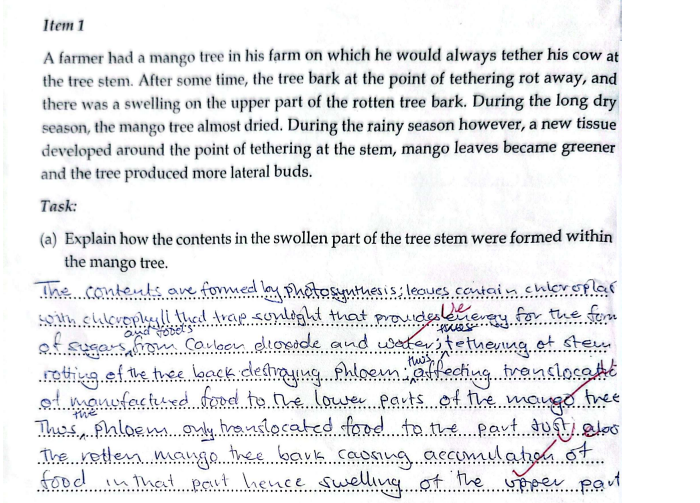 Item 1
A farmer had a mango tree in his farm on which he would always tether his cow at
the tree stem. After some time, the tree bark at the point of tethering rot away, and
there was a swelling on the upper part of the rotten tree bark. During the long dry
season, the mango tree almost dried. During the rainy season however, a new tissue
developed around the point of tethering at the stem, mango leaves became greener
and the tree produced more lateral buds.
Task:
(a) Explain how the contents in the swollen part of the tree stem were formed within
the mango tree.
The contents are formed by photosynthesis; leaves contain chloroplas
with chlorophyll that trap sunlight that provides the energy for the form
of sugars and foods from Carbon dioxide and water; tethering of stem
rotting of the tree back destroying phloem; thus, affecting translocati
of manufactured food to the lower parts of the mango tree
Thus, the phloem only translocated food to the part just
the rotten mango tree bark causing accumulation of
food in that part hence swelling of the upper part